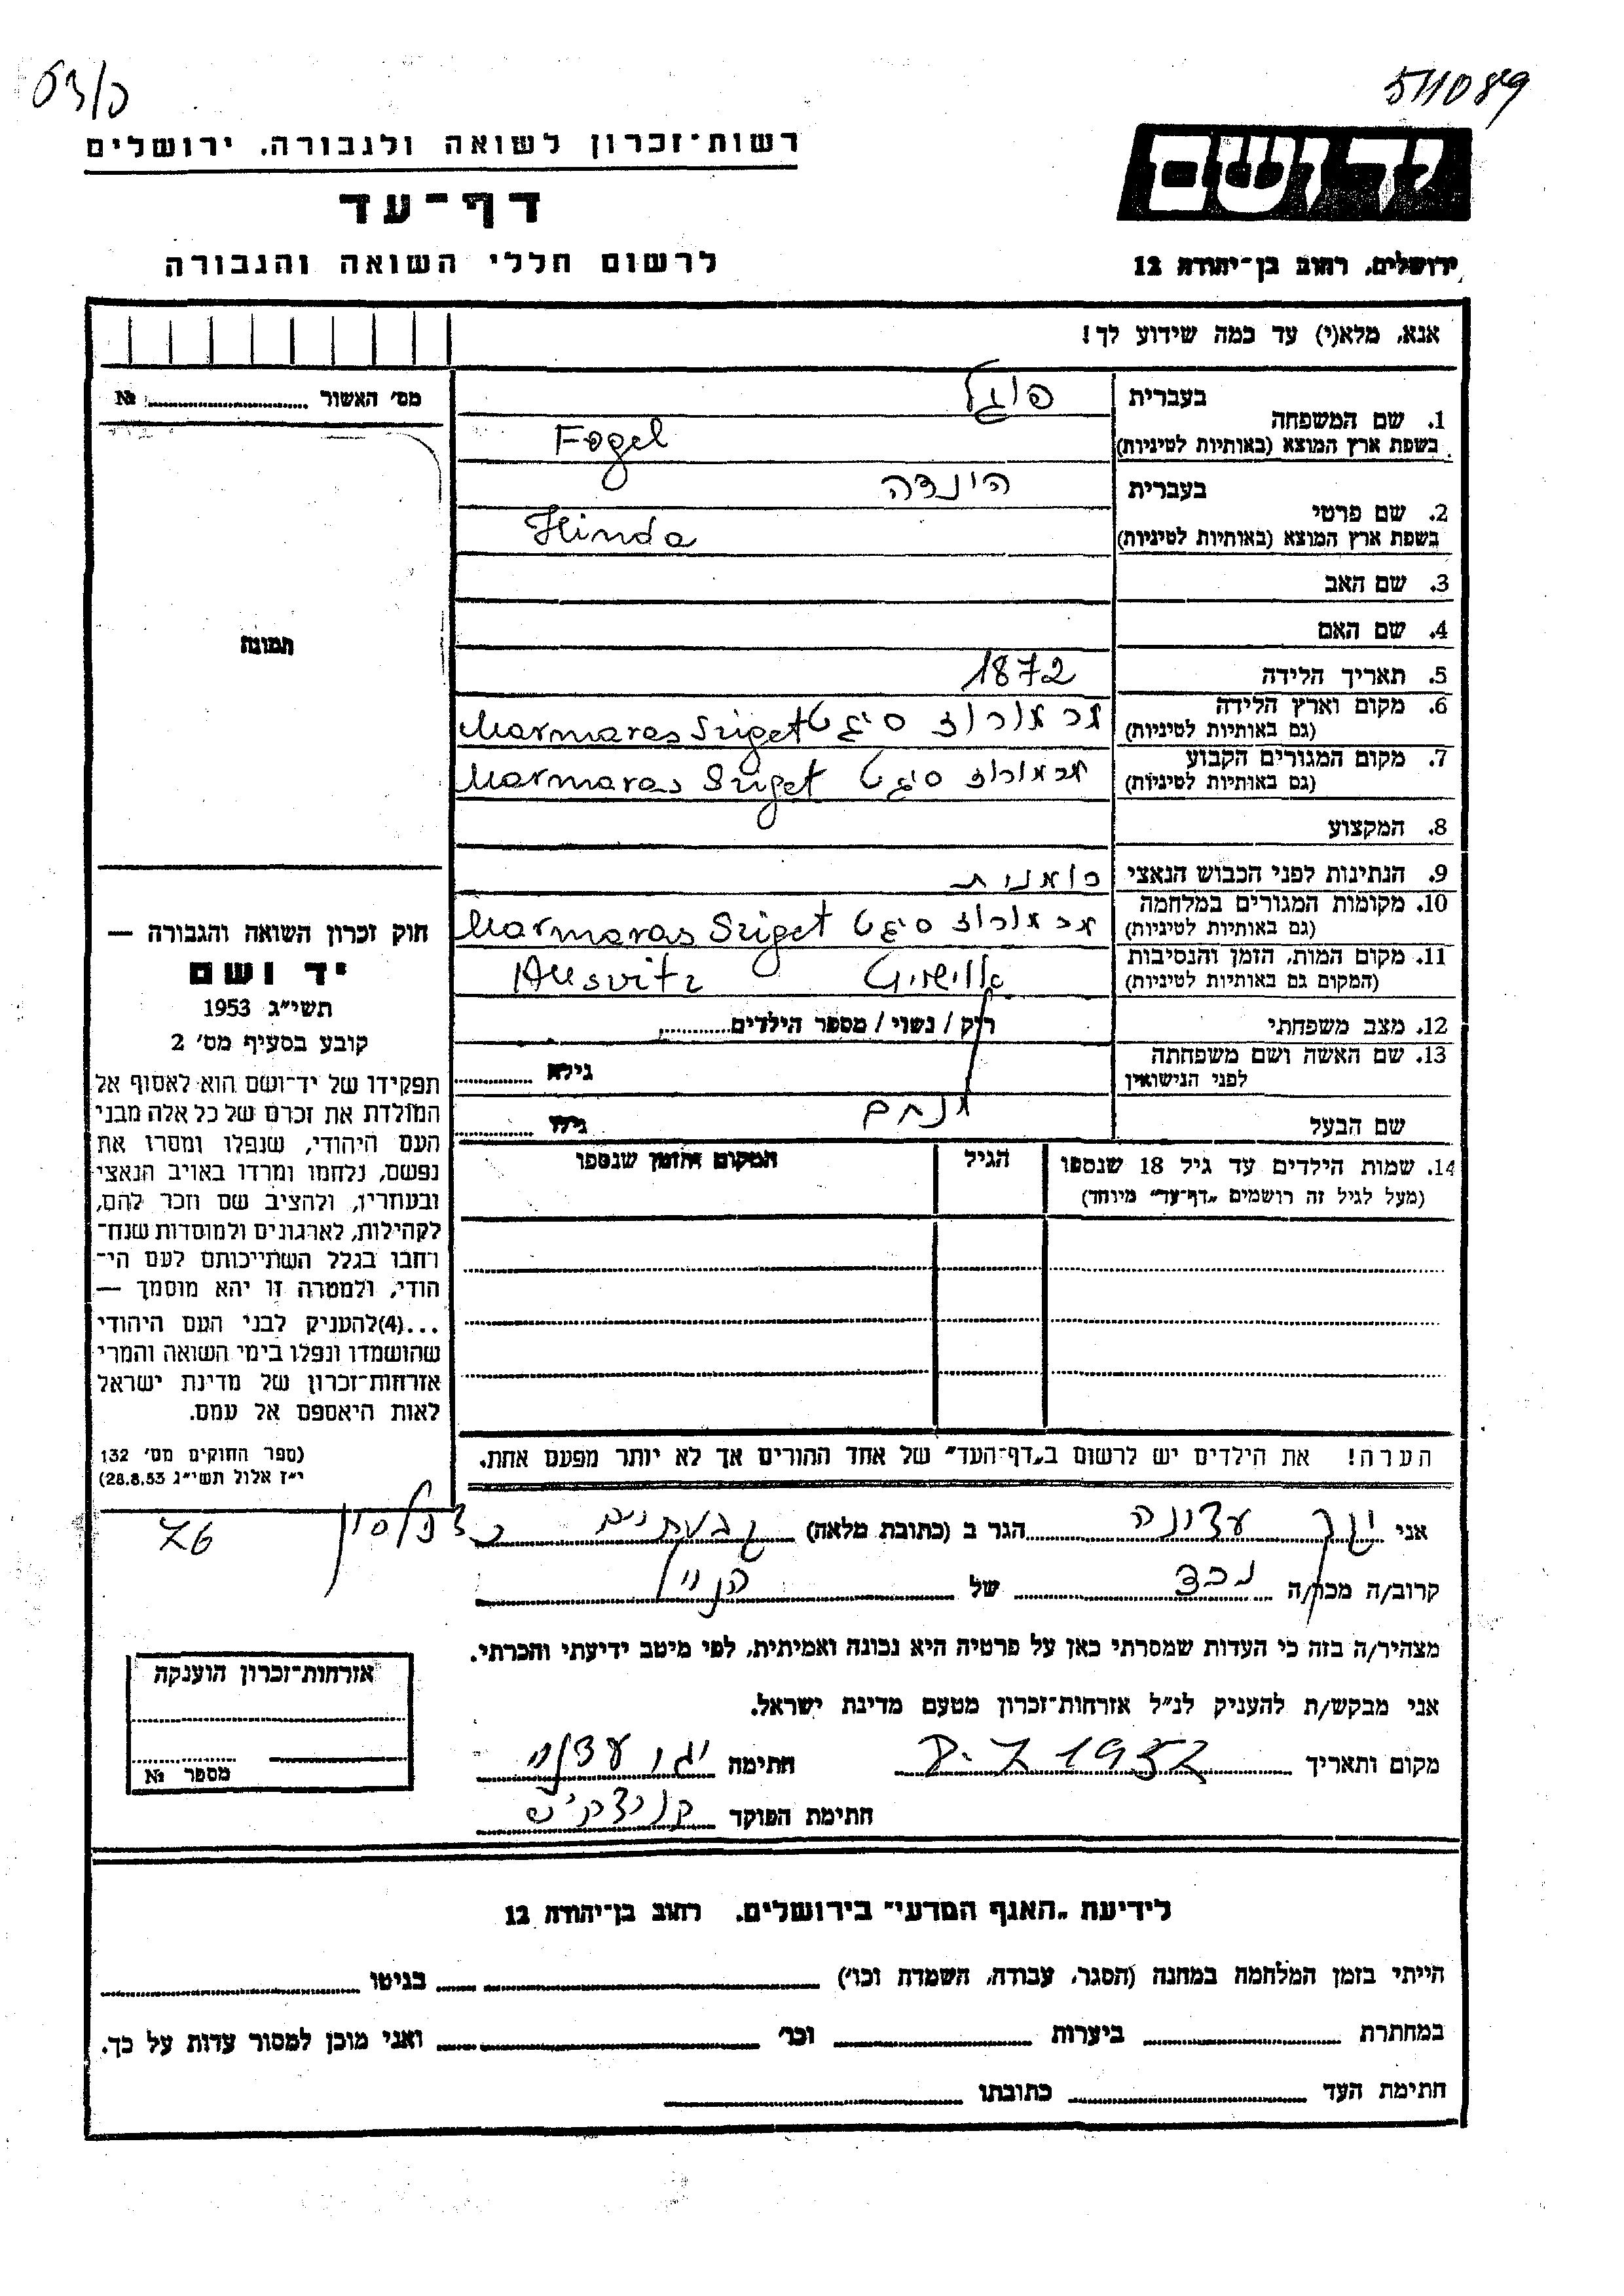 511089
יד ושם
ירושלים, רחוב בן־יהודה 12
רשות־זכרון לשואה ולגבורה, ירושלים
דף־עד
לרשום חללי השואה והגבורה
אנא, מלא(י) עד כמה שידוע לך!
מס׳ האשור № 
1. שם המשפחה
בעברית
פוגל
בשפת ארץ המוצא (באותיות לטיניות)
Fogel
2. שם פרטי
בעברית
הינדה
בשפת ארץ המוצא (באותיות לטיניות)
Hinda
3. שם האב
4. שם האם
5. תאריך הלידה
1872
6. מקום וארץ הלידה
(גם באותיות לטיניות)
מרמורוז סיגט Marmaras Sziget
7. מקום המגורים הקבוע
(גם באותיות לטיניות)
מרמורוז סיגט Marmaras Sziget
8. המקצוע
9. הנתינות לפני הכבוש הנאצי
רומנית
10. מקומות המגורים במלחמה
(גם באותיות לטיניות)
מרמורוז סיגט Marmaras Sziget
11. מקום המות, הזמן והנסיבות
(המקום גם באותיות לטיניות)
אושויץ Ausvitz
12. מצב משפחתי
רוק / נשוי / מספר הילדים
13. שם האשה ושם משפחתה
לפני הנישואין
גילא
שם הבעל
מנחם
גילו
14. שמות הילדים עד גיל 18 שנספו
(מעל לגיל זה רושמים „דף־עד״ מיוחד)
הגיל
המקום והזמן שנספו
הערה! את הילדים יש לרשום ב„דף־העד״ של אחד ההורים אך לא יותר מפעם אחת.
תמונה
חוק זכרון השואה והגבורה —
יד ושם
תשי״ג 1953
קובע בסעיף מס׳ 2
תפקידו של יד־ושם הוא לאסוף אל
המולדת את זכרם של כל אלה מבני
העם היהודי, שנפלו ומסרו את
נפשם, נלחמו ומרדו באויב הנאצי
ובעוזריו, ולהציב שם וזכר להם,
לקהילות, לארגונים ולמוסדות שנח־
רחבו בגלל השתייכותם לעם הי־
הודי, ולמטרה זו יהא מוסמך —
...(4)להעניק לבני העם היהודי
שהושמדו ונפלו בימי השואה והמרי
אזרחות־זכרון של מדינת ישראל
לאות היאספם אל עמם.
(ספר החוקים מס׳ 132
י״ז אלול תשי״ג 28.8.53)
אני עדונה הגר ב (כתובת מלאה) גבעתיים כצנלסון 76
קרוב/ה מכר/ה נכד של הנ״ל
מצהיר/ה בזה כי העדות שמסרתי כאן על פרטיה היא נכונה ואמיתית, לפי מיטב ידיעתי והכרתי.
אני מבקש/ת להעניק לנ״ל אזרחות־זכרון מטעם מדינת ישראל.
מקום ותאריך חתימה
חתימת הפוקד
אזרחות־זכרון הוענקה
מספר №
לידיעת „האגף המדעי״ בירושלים, רחוב בן־יהודה 12
הייתי בזמן המלחמה במחנה (הסגר, עבודה, השמדה וכו׳) בגיטו
במחתרת ביערות וכו׳ ואני מוכן למסור עדות על כך.
חתימת העד כתובתו